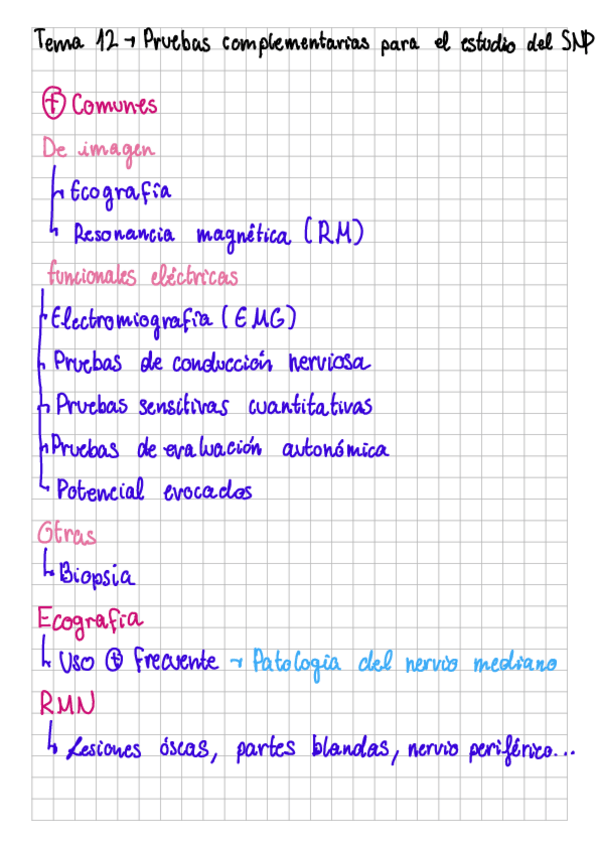 Tema 12 → Pruebas complementarias para el estudio del SNP
⊕ Comunes
De imagen
Ecografía
Resonancia magnética (RM)
funcionales eléctricas
Electromiografía (EMG)
Pruebas de conducción nerviosa
Pruebas sensitivas cuantitativas
Pruebas de evaluación autonómica
Potencial evocados
Otras
Biopsia
Ecografía
Uso ⊕ frecuente → Patología del nervio mediano
RMN
Lesiones óseas, partes blandas, nervio periférico...